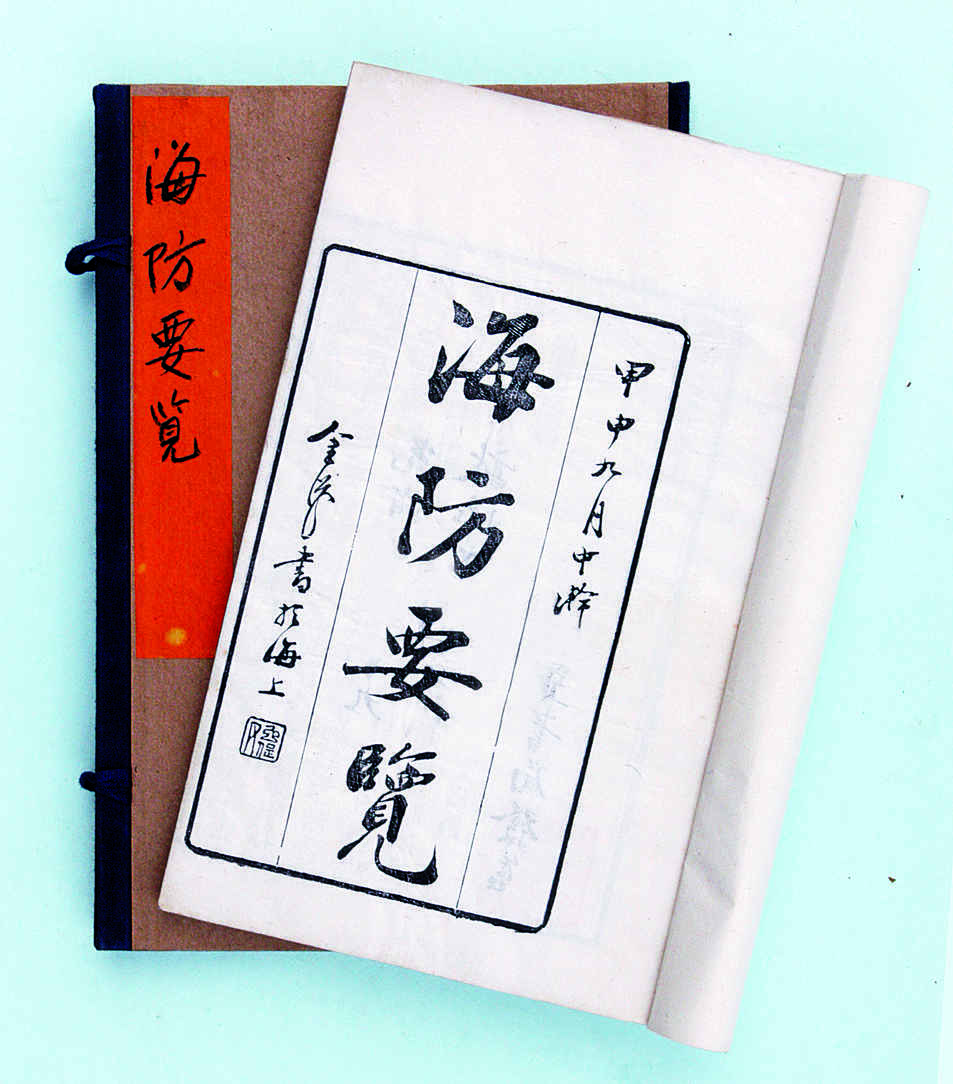 海防要覧
甲申九月中澣
海防要覽
金
書於海上